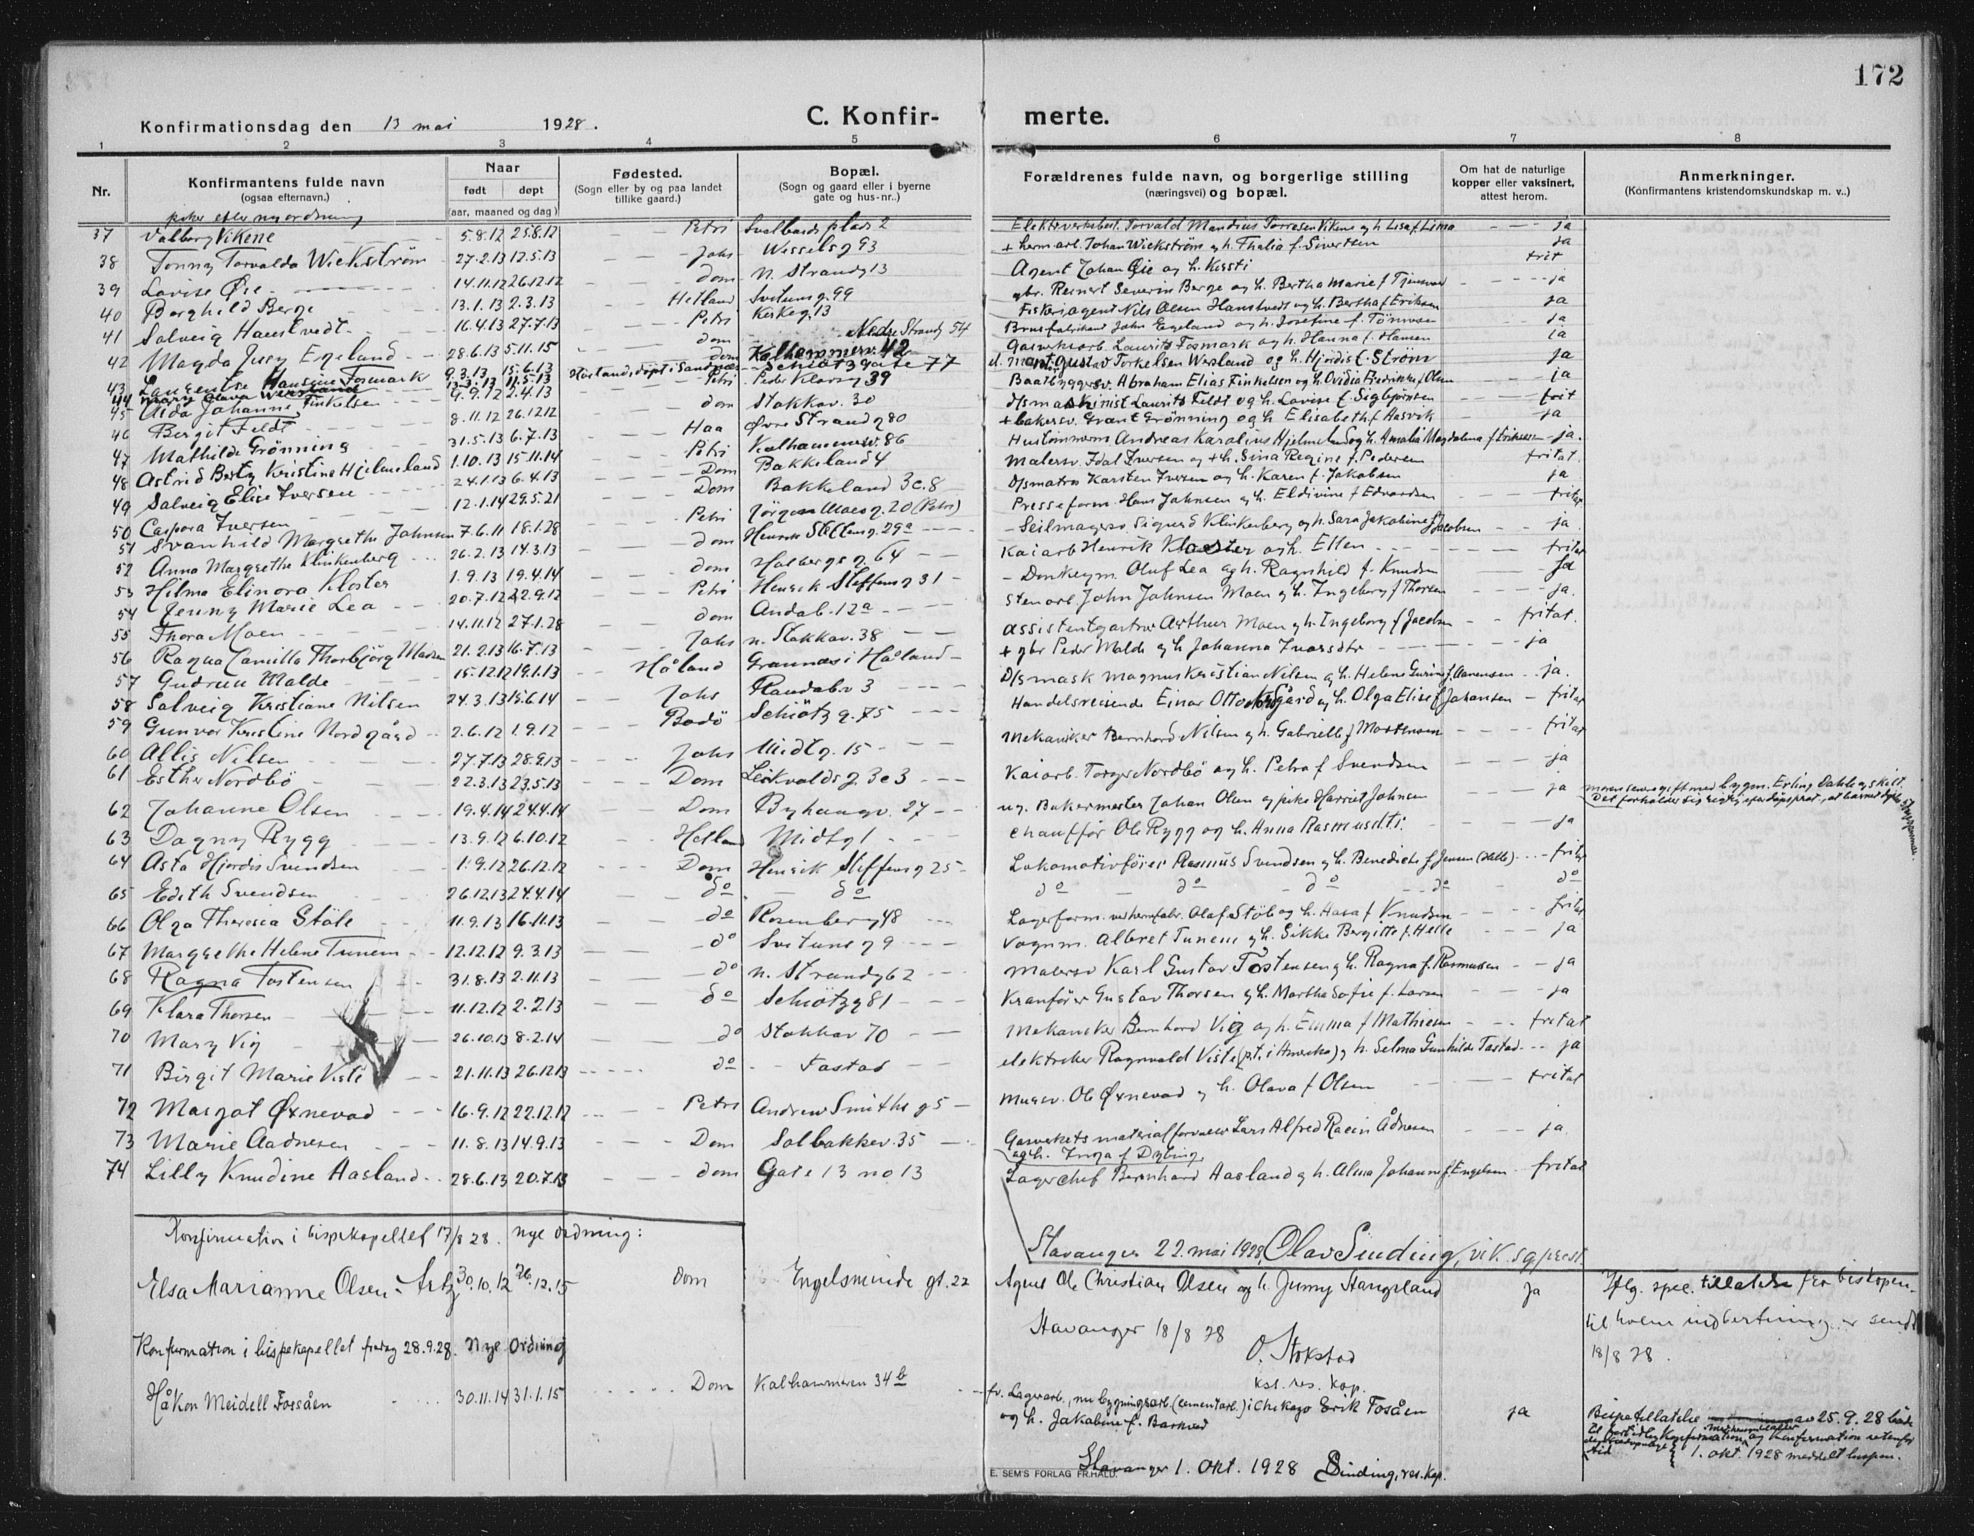 172
Konfirmationsdag den 13 mai 1928.
C. Konfirmerte.
1 2 3 4 5 6 7 8
Nr.
Konfirmantens fulde navn
(ogsaa efternavn.)
Naar
født døpt
(aar, maaned og dag)
Fødested.
(Sogn eller by og paa landet
tillike gaard.)
Bopæl.
(Sogn og gaard eller i byerne
gate og hus-nr.)
Forældrenes fulde navn, og borgerlige stilling
(næringsvei) og bopæl.
Om hat de naturlige
kopper eller vaksinert,
attest herom.
Anmerkninger.
(Konfirmantens kristendomskundskap m. v.)
piker efter ny ordning
37 Valborg Vikene 5.8.12 25.8.12 Petri Svalbards plads 2 ja
38 Tonny Torvalda Wickström 27.2.13 12.5.13 Johs Wesselsg 93 + herm.arb. Johan Wickström og h. Thalia f. Sivertsen ja
39 Lovise Øie 14.11.12 26.12.12 Dom N. Strandg 13 Agent Johan Øie og h. Kersti frit
40 Borghild Berge 13.1.13 2.3.13 Hetland Svitunsg. 99 gbr. Reinert Severin Berge og h. Bertha Marie f. ja
41 Solveig Haustvedt 16.4.13 27.7.13 Petri Kirkeg. 13 Fiskeriagent Nils Olsen Haustvedt og h. Bertha f. Eriksen ja
42 Magda Egeland 28.6.13 5.11.15 dom Nedre Strandg 54 Brusfabrikant John Egeland og h. Josefine f. ja
43 Laugentse Hansine Fosmark 9.3.13 15.6.13 dom Kalhammerv. 42 Gasverksarb. Laurits Fosmark og h. Hanna f. Hansen ja
44 Mary Olava Wersland 13.3.13 11.5.13 døpt i Sandnæs Schiøtzgate 77 Gustav Torkelsen Wersland og h. Hjördis f. Ström ja
45 Aida Johanne Finkelsen 9.9.12 2.4.13 Petri Peder Klowsg 39 Baatbyggersv. Abraham Elias Finkelsen og h. Ovidia Fredrikke f. Olsen ja
46 Bergit Feldt 8.11.12 26.12.12 dom Stokkav. 30 D/s maskinist Laurits Feldt og h. Lovise f. Sigbjørnsen frit
47 Mathilde Grönning 31.5.13 6.7.13 Haa Øvre Strandg 80 + bakersv. Grant Grönning og h. Elisabeth f. Aasvik ja
48 Astrid Berty Kristine Hjelmeland 1.10.13 15.11.14 Petri Kalhammerv. 86 Andreas Karolius Hjelmeland og h. Amalie Magdalena f. Eriksen ja.
49 Solveig Elise Iversen 24.1.13 6.4.13 Dom Bakkeland 4 Malersv. Idal Iversen og + h. Sina Regine f. Pedersen fritat.
50 Caspora Iversen 12.1.14 29.5.21 Dom Bakkeland 3c.8 D/smatros Karsten Iversen og h. Karen f. Jakobsen ja
51 Svanhild Margrethe Johnsen 7.6.11 18.1.28 Petri Jörgen Moesg. 20 (Petri) Presseform. Hans Johnsen og h. Eldivine f. Edvardsen fritat
52 Anna Margrethe Klinkenberg 26.2.13 14.3.13 dom Henrik Steffensg. 29a Seilmagersv. Sigurd Klinkenberg og h. Sara Jakobine f. Jacobsen ja
53 Hilma Elinora Kloster 1.9.13 19.4.14 dom Holbergsg 64 Kaiarb Henrik Kloster og h. Ellen fritat
54 Jenny Marie Lea 20.7.12 22.9.12 Petri Henrik Steffensg 31 Donkeym. Oluf Lea og h. Ragnhild f. Knudsen ja
55 Thora Moen 14.11.12 27.1.28 dom Andab. 12a Stenarb. John Johnsen Moen og h. Ingeborg f. Thorsen ja.
56 Ragna Camilla Thorbjörg 21.2.13 16.7.13 Johs n. Stokkav. 38 assistentgartner Arthur Moen og h. Ingeborg f. Jacobsen fritat.
57 Gudrun Malde 15.12.12 19.1.13 Håland Grannæs i Håland + gbr Peder Malde og h. Johanna Ivarsdtr ja
58 Solveig Kristiane Nilsen 24.3.13 15.6.14 Johs Randabv 3 D/smask Magnus Kristian Nilsen og h. Helene Gurine f. Aanensen ja.
59 Gunvor Kristine Nordgård 2.6.12 1.9.12 Bodö Schiøtzg. 75 Handelsreisende Einar Otto Nordgård og h. Olga Elise f. Johansen fritat
60 Allis Nilsen 27.7.13 28.9.13 Johs Midtg. 15 Mekaniker Bernhard Nilsen og h. Gabrielle f. Mortensen fritat
61 Esther Nordbö 22.3.13 23.5.13 Dom g. 3c3 Kaiarb. Torger Nordbö og h. Petra f. Svendsen ja
62 Johanne Olsen 19.4.14 24.4.14 Dom Byhaugv. 27 ug. Bakermester Johan Olsen og pike Harriet Johnsen ja moren senere gift med bygm. Erling Dahle og skilt.
63 Dagny Rygg 13.9.12 6.10.12 Hetland Midtg 1 Chauffør Ole Rygg og h. Anna Rasmusdtr. ja
64 Asta Hjördis Svendsen 1.9.12 26.12.12 Dom Henrik Steffensg 25 Lokomotivfører Rasmus Svendsen og h. Benedicte f. Jensen (Helle) fritat
65 Edith Svendsen 26.12.13 24.4.14 do do do do do do do
66 Olga Theresia Stöle 11.9.13 16.11.13 do Rosenberg 48 Lagerform. Olaf Stöle og h. f. Knudsen fritat
67 Margrethe Helene Tunem 12.12.12 9.3.13 do Svitunsg 9 Vognm. Albret Tunem og h. Sikke Bergitte f. Helle ja
68 Ragna Tostensen 31.8.13 2.11.13 do n. Strandg 62 Malersv Karl Gustav Tostensen og h. Ragna f. Rasmussen ja
69 Klara Thorsen 11.12.12 2.2.13 do Schiøtzg 81 Kranfører Gustav Thorsen og h. Martha Sofie f. Larsen ja
70 Mary Vig 26.10.13 8.2.14 do Stokkav 70 Mekaniker Bernhard Vig og h. Emma f. Mathiesen fritat
71 Birgit Marie Viste 21.11.13 26.12.13 do Tastad elektriker Ragnvald Viste (p.t. i Amerika) og h. Selma Gunhilde Tastad ja
72 Margot Øxnevad 16.9.12 22.12.12 Petri Andrew Smiths g 5 Mursv. Ole Øxnevad og h. Olava f. Olsen fritat
73 Marie Aadnesen 11.8.13 14.9.13 Dom Solbakkev. 35 Gasverkets materialforvalter Lars Alfred Ådnesen ja.
og h. Inga f. Dybing
74 Lilly Knudine Aasland 28.6.13 20.7.13 dom Gate 13 no 13 Lagerchef Bernhard Aasland og h. Alma Johanne f. Engelsen fritat
Stavanger 22. mai 1928, Olav Sinding, vik. sogneprest
Konfirmation i bispekapellet 17/8 28. nye ordning:
Elsa Marianne Olsen 30.10.12 26.12.15 dom Engelsminde gt. 22 Agent Ole Christian Olsen og h. Jenny Stangeland ja Iflg. spec. tillatelse fra biskopen.
til hvem indberetning er sendt
18/8 28.
Stavanger 18/8 28
O. Stokstad
kst. res. kap.
Konfirmation i bispekapellet fredag 28.9.28. Nye Ordning
Håkon Meidell Fossåen 30.11.14 31.1.15 Dom Kalhammeren 34b fv. Lagerarb., nu bygningsarb. (cementarb.) i Chikago Erik Fosåen
og h. Jakobine f. Barkved ja Bispetillatelse av 25.9.28
1. okt. 1928 meddelt bispen.
Stavanger 1. okt. 1928 Sinding, res. kap.
E. SEM'S FORLAG FR.HALD.